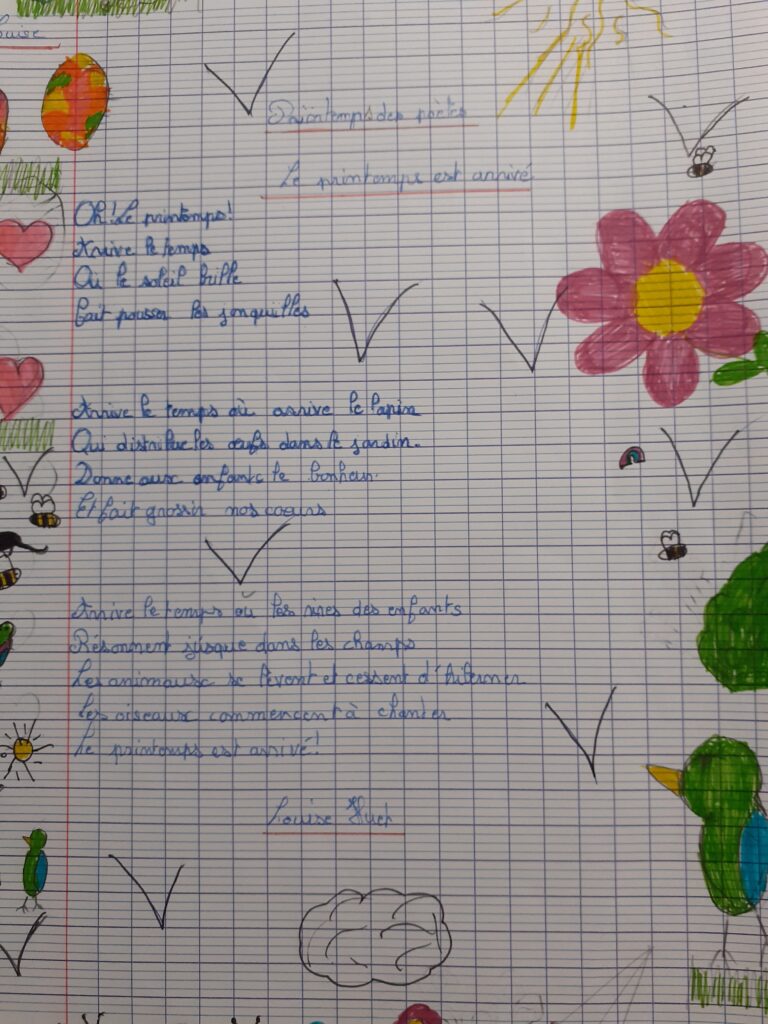 Louise
Printemps des poètes
Le printemps est arrivé
Oh! Le printemps!
Arrive le temps
Où le soleil brille
Fait pousser les jonquilles
Arrive le temps où arrive le lapin
Qui distribue les œufs dans le jardin.
Donne aux enfants le bonheur.
Et fait grossir nos coeurs
Arrive le temps où les rires des enfants
Résonnent jusque dans les champs
Les animaux se lèvent et cessent d'hiberner
Les oiseaux commencent à chanter
Le printemps est arrivé!
Louise